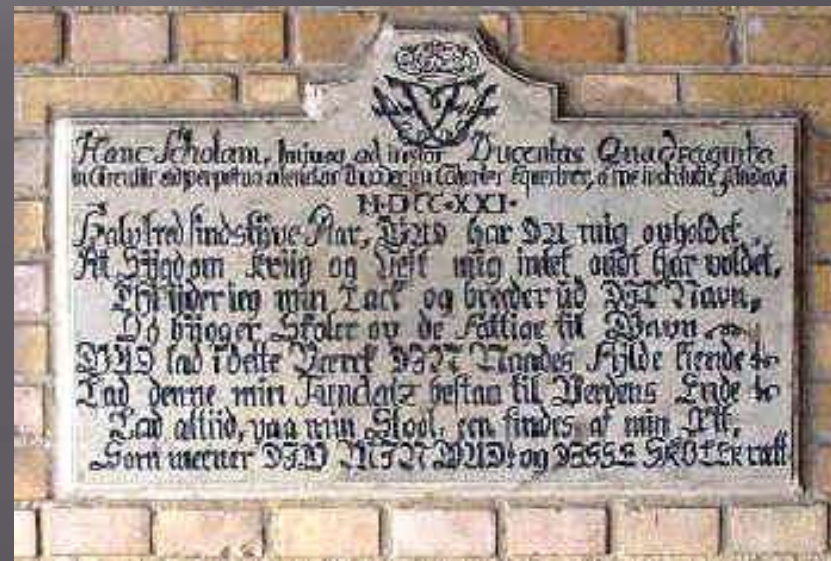 Hanc Scholam, hujusq ad instar Ducentas Quadraginta
in Circulis ad perpetuo alendas duodecim Cohortes Equestres, a me institutis, fundavi
M·DCC·XXI·
Halvtredsindstyve Aar, GUD har DU mig opholdet,
At Sygdom Kriig og Pest mig intet ondt har voldet,
Thi yder ieg min Tack og breder ud DIT Navn,
Og bygger Skoler op de Fattige til Gavn
GUD lad i dette Værck DIN Naades Fylde kiende
Lad denne min Fundatz bestaa til Verdens Ende
Lad altiid, paa min Stool, een findes af min Æt,
Som meener DIG MIN GUD! og DISSE SKOLER rætt